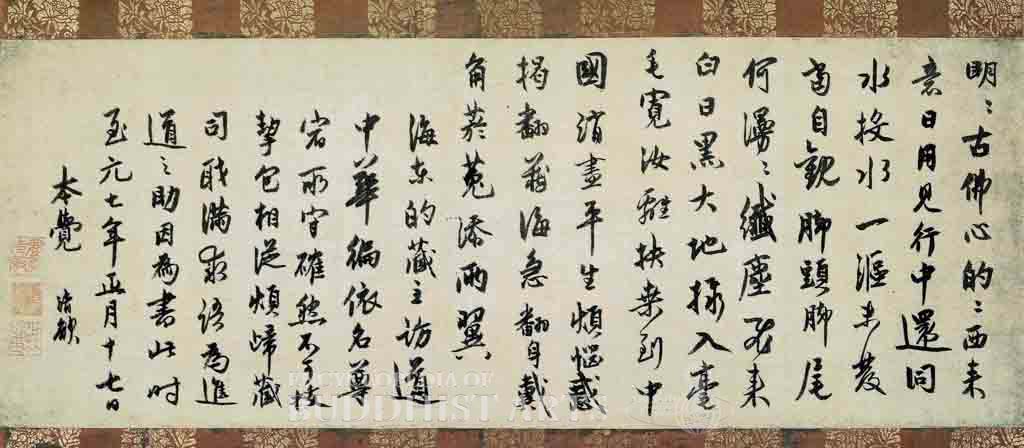 明〻古佛心的〻西来
意日用見行中還同
水投水一漚未發
當自観脚頭脚尾
何漫〻纖塵不来
白日黒大地攝入毫
毛寛汝離扶桒到中
國消盡平生煩惱惑
掲翻蔵海急翻身戴
角菸菟添兩翼
海東的蔵主訪道
中華徧依名尊
宿所守確然不可拔
挈包相従煩歸蔵
司職滿求語為進
道〻助因為書此时
至元七年正月十七日
本覺 清欲
ENCYCLOPEDIA OF
BUDDHIST ARTS